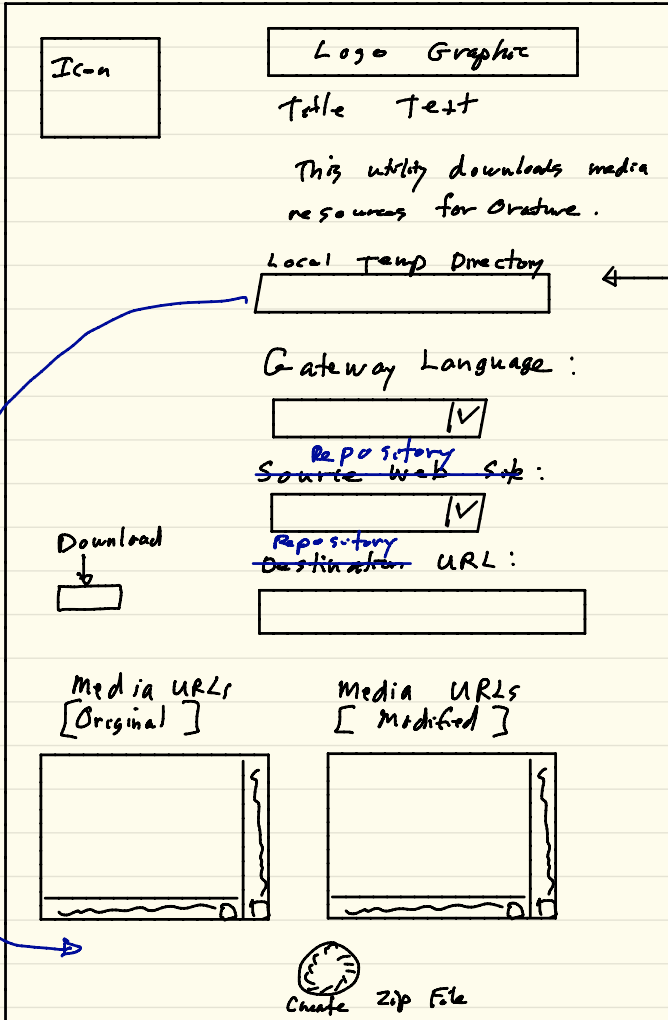 Icon
Logo Graphic
Title Text
This utility downloads media
resources for Orature.
Local Temp Directory
Gateway Language :
Repository
Source Web Site :
Repository
Destination URL :
Download
Media URLs
[Original]
Media URLs
[Modified]
Create Zip File